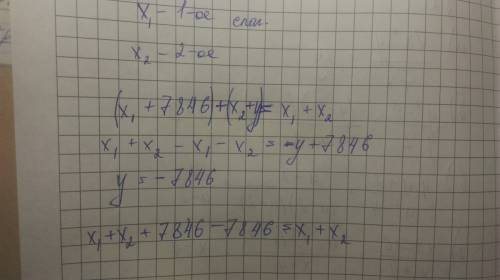 x₁ - 1-ое слаг.
x₂ - 2-ое
(x₁ + 7846) + (x₂ + y) = x₁ + x₂
x₁ + x₂ - x₁ - x₂ = -y + 7846
y = - 7846
x₁ + x₂ + 7846 - 7846 = x₁ + x₂